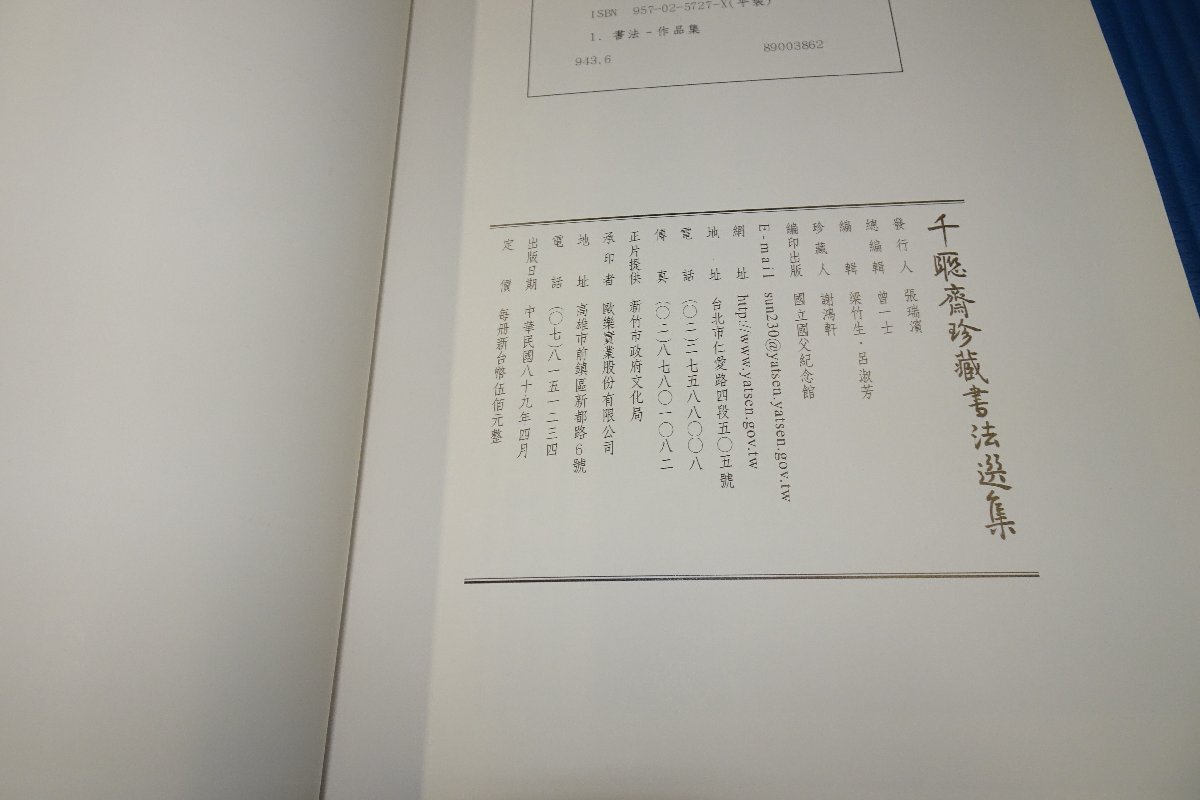 ISBN 957-02-5727-X(平裝)
1. 書法-作品集
943.6 89003862
千聯齋珍藏書法選集
發行人 張瑞濱
總編輯 曾一士
編輯 梁竹生・呂淑芳
珍藏人 謝鴻軒
編印出版 國立國父紀念館
E-mail sun230@yatsen.yatsen.gov.tw
網址 http://www.yatsen.gov.tw
地址 台北市仁愛路四段五〇五號
電話 (〇二)二七五八八〇〇八
傳真 (〇二)八七八〇一〇八二
正片提供 新竹市政府文化局
承印者 歐樂實業股份有限公司
地址 高雄市前鎮區新都路6號
電話 (〇七)八一五一二三四
出版日期 中華民國八十九年四月
定價 每冊新台幣伍佰元整